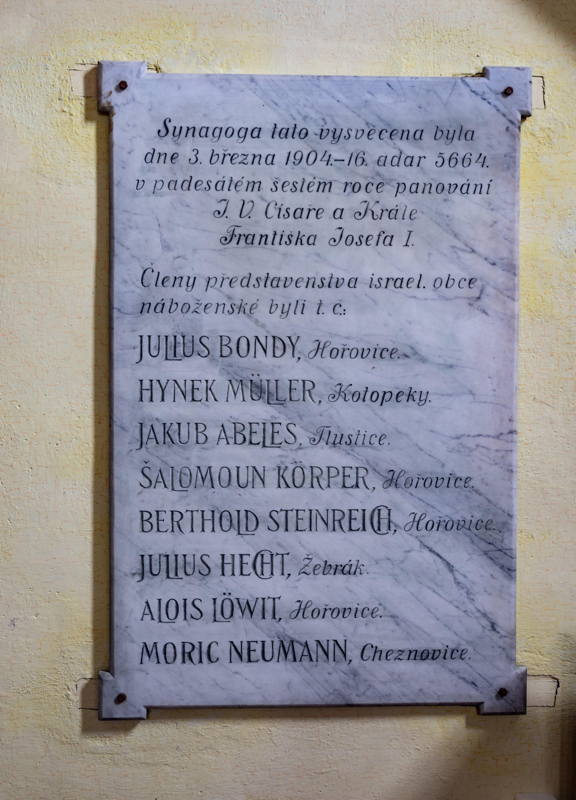 Synagoga tato vysvěcena byla
dne 3. března 1904.–16. adar 5664.
v padesátém šestém roce panování
J. V. Císaře a Krále
Františka Josefa I.
Členy představenstva israel. obce
náboženské byli t. č.:
JULIUS BONDY, Hořovice.
HYNEK MÜLLER, Kotopeky.
JAKUB ABELES, Tlustice.
ŠALOMOUN KÖRPER, Hořovice.
BERTHOLD STEINREICH, Hořovice.
JULIUS HECHT, Žebrák.
ALOIS LÖWIT, Hořovice.
MORIC NEUMANN, Cheznovice.